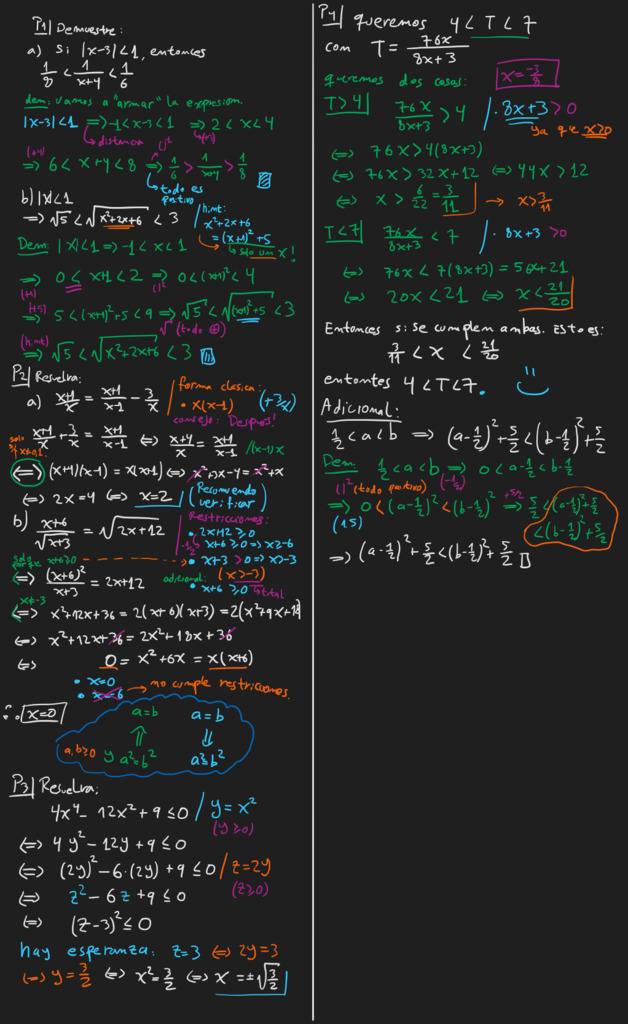 P1| Demuestre:
a) Si |x-3|<1, entonces
1/8 < 1/(x+4) < 1/6
dem: vamos a "armar" la expresión.
|x-3|<1 ⟹ -1<x-3<1 ⟹ 2<x<4
distancia ( )² (+3)
(+4) ⟹ 6 < x+4 < 8 ⟹ 1/6 > 1/(x+4) > 1/8
todo es positivo
b) |x|<1
⟹ √5 < √(x²+2x+6) < 3
hint:
x²+2x+6
= (x+1)²+5
solo un x!
Dem: |x|<1 ⟹ -1 < x < 1
⟹ 0 < x+1 < 2 ⟹ 0<(x+1)²<4
(+1) ( )²
(+5)
⟹ 5<(x+1)²+5<9 ⟹ √5 < √((x+1)²+5) < 3
√ (todo ⊕)
(hint)
⟹ √5 < √(x²+2x+6) < 3
P2| Resuelva:
a) (x+1)/x = (x+1)/(x-1) - 3/x
forma clásica:
• x(x-1) (+3/x)
consejo: Después!
(x+1)/x + 3/x = (x+1)/(x-1) ⟺ (x+4)/x = (x+1)/(x-1) /(x-1)x
solo si x≠0,1
⟺ (x+4)(x-1) = x(x+1) ⟺ x²+3x-4 = x²+x
⟺ 2x=4 ⟺ x=2 (Recomiendo verificar)
b) (x+6)/√(x+3) = √(2x+12)
Restricciones:
• 2x+12 ≥0
x+6 ≥0 ⟹ x≥-6
• x+3 >0 ⟹ x>-3
adicional: (x>-3)
• x+6 ≥0 total
solo porque x+6≥0
⟺ (x+6)²/(x+3) = 2x+12
x≠-3
⟺ x²+12x+36 = 2(x+6)(x+3) = 2(x²+9x+18
⟺ x²+12x+36 = 2x²+18x+36
⟺ 0 = x²+6x = x(x+6)
• x=0
• x=-6 → no cumple restricciones.
∴ x=0
a=b a=b
⇑ ⇓
a,b≥0 y a²=b² a²=b²
P3| Resuelva:
4x⁴ - 12x² + 9 ≤ 0 / y = x²
(y≥0)
⟺ 4y² - 12y + 9 ≤ 0
⟺ (2y)² - 6·(2y) + 9 ≤ 0 / z=2y
(z≥0)
⟺ z² - 6z + 9 ≤ 0
⟺ (z-3)² ≤ 0
hay esperanza: z=3 ⟺ 2y=3
⟺ y = 3/2 ⟺ x² = 3/2 ⟺ x = ±√(3/2)
P4| queremos 4 < T < 7
con T = 76x/(8x+3)
queremos dos cosas: x = -3/8
T>4| 76x/(8x+3) > 4 /· 8x+3 > 0
ya que x≥0
⟺ 76x > 4(8x+3)
⟺ 76x > 32x+12 ⟺ 44x > 12
⟺ x > 6/22 = 3/11 → x>3/11
T<7| 76x/(8x+3) < 7 /· 8x+3 >0
⟺ 76x < 7(8x+3) = 56x+21
⟺ 20x < 21 ⟺ x<21/20
Entonces si se cumplen ambas. Esto es:
3/11 < x < 21/20
entontes 4<T<7.
Adicional:
1/2 < a < b ⟹ (a-1/2)²+5/2 < (b-1/2)²+5/2
Dem: 1/2 < a < b ⟹ 0 < a-1/2 < b-1/2
( )² (todo positivo) (-1/2)
⟹ 0 < (a-1/2)² < (b-1/2)² ⟹ 5/2 < (a-1/2)²+5/2
+5/2
(15) < (b-1/2)²+5/2
⟹ (a-1/2)²+5/2 < (b-1/2)²+5/2